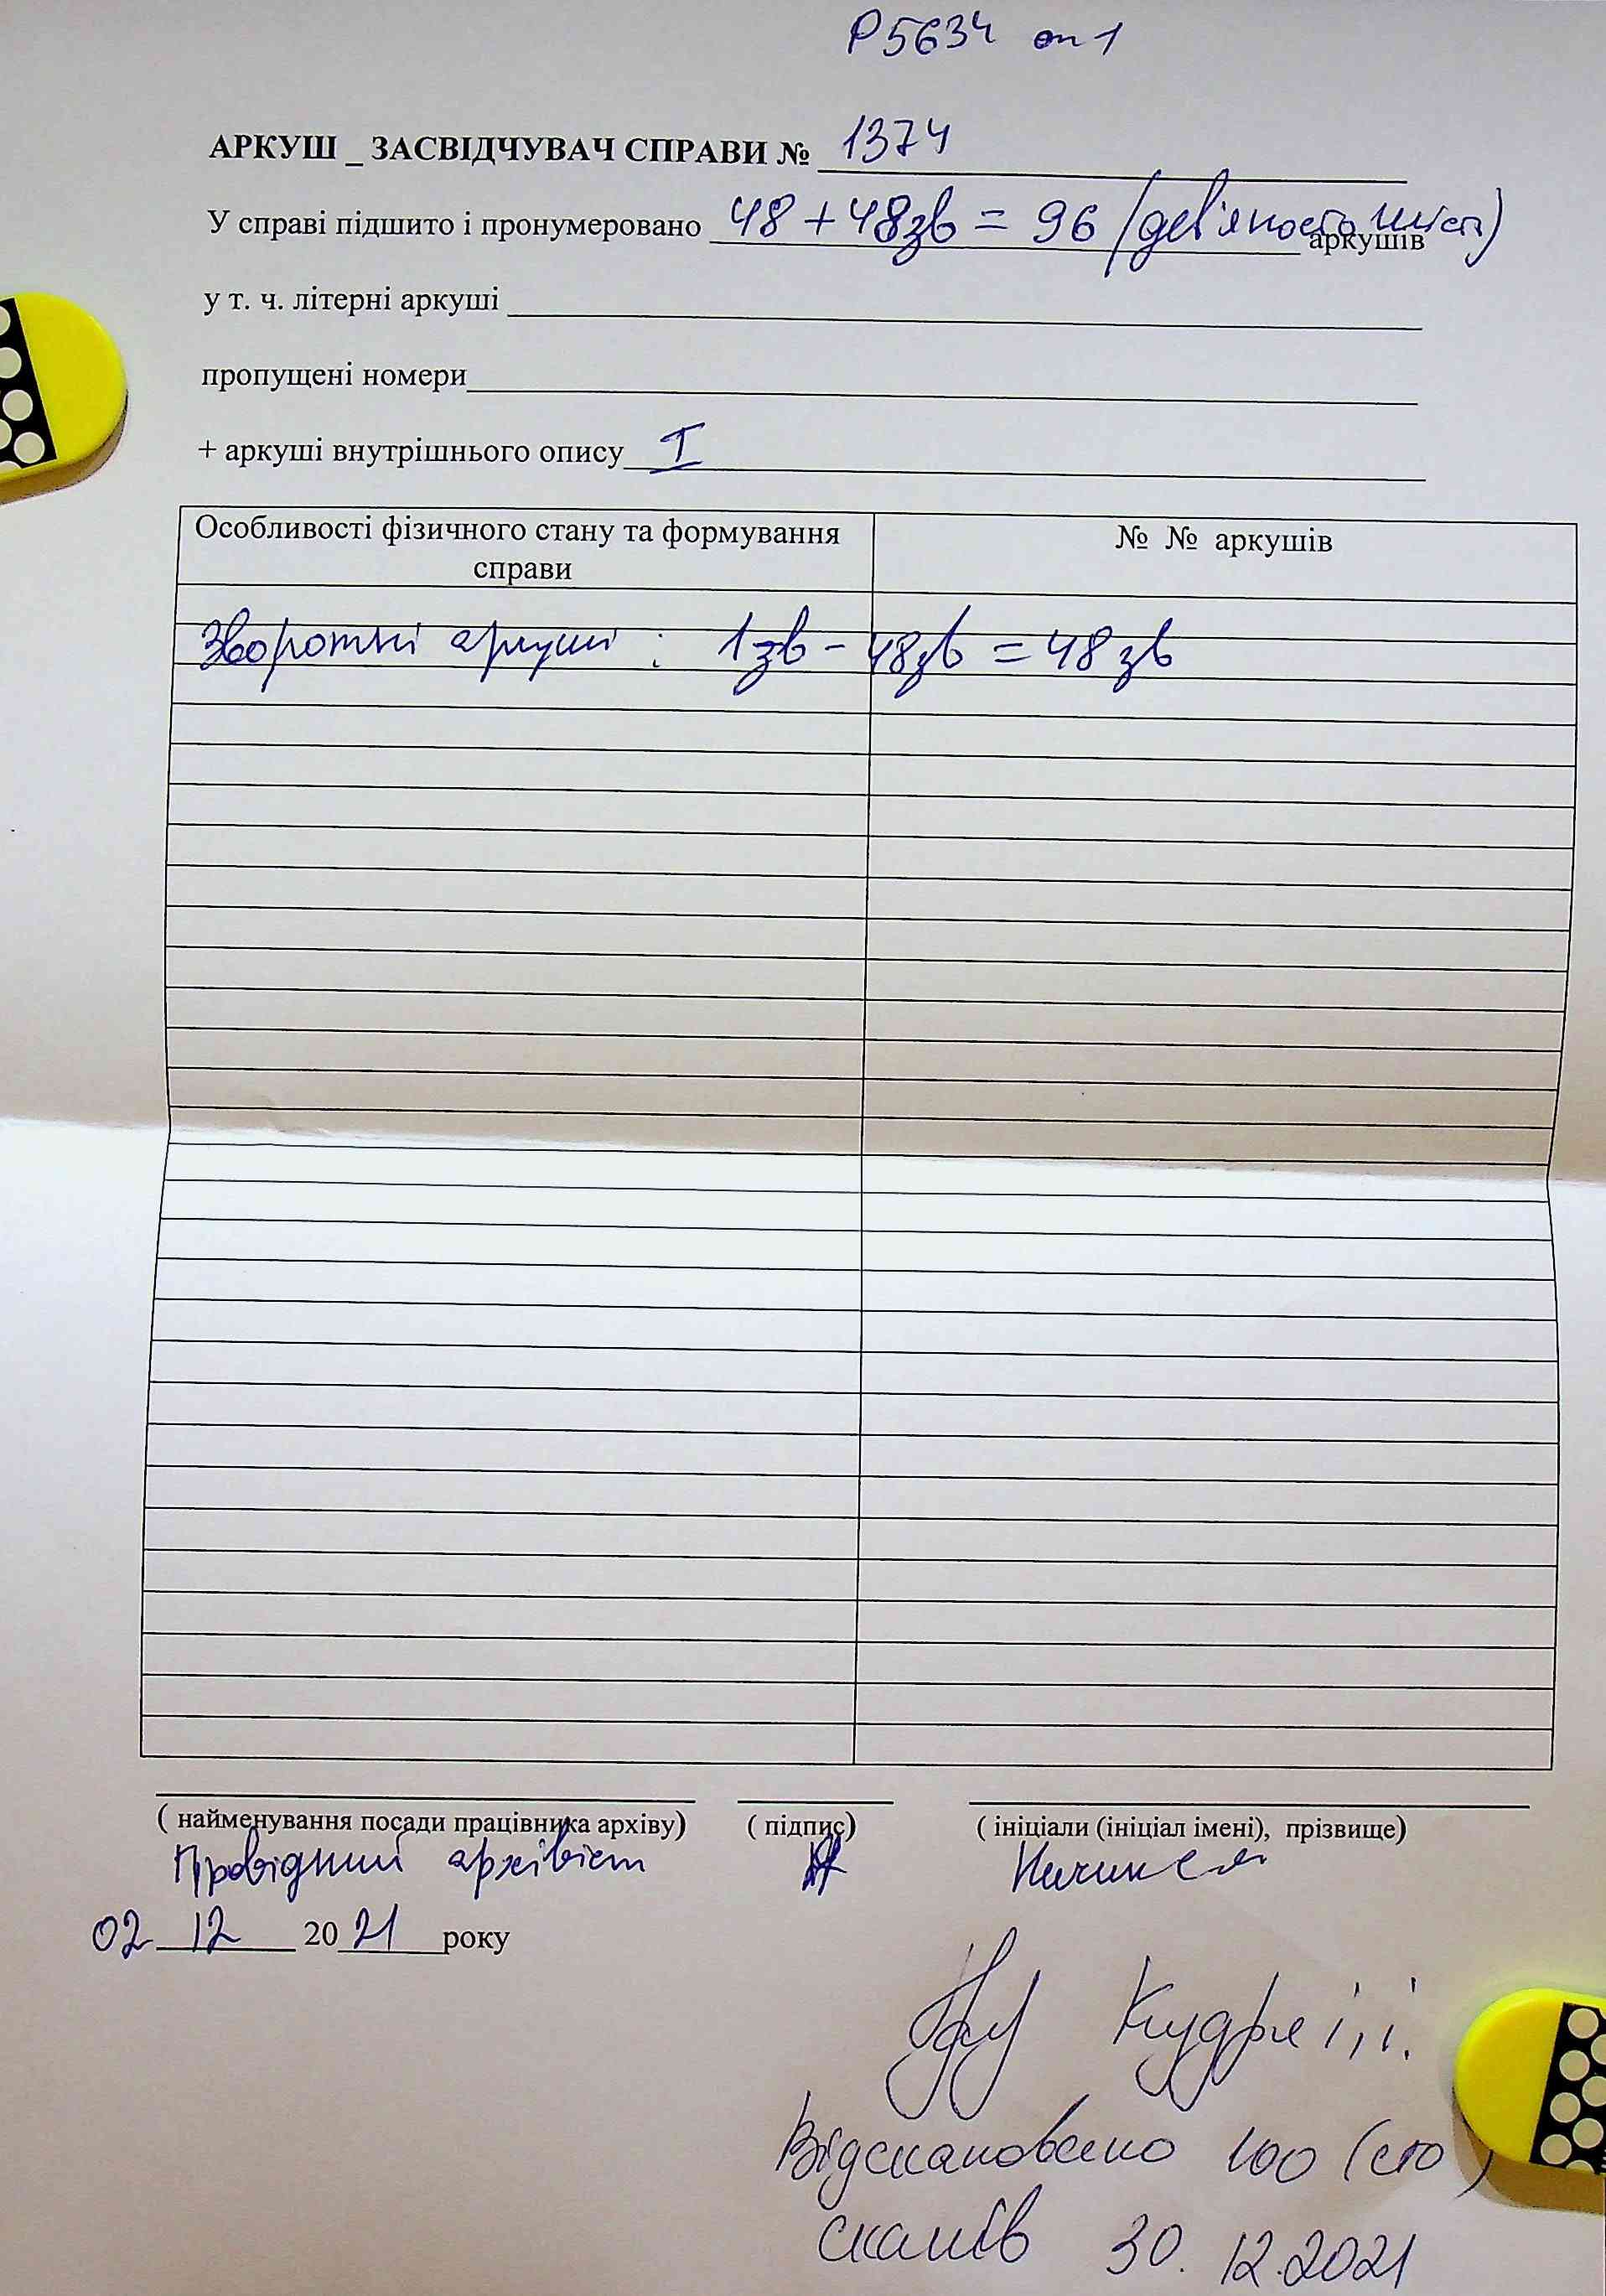 Р5634 оп 1
АРКУШ _ ЗАСВІДЧУВАЧ СПРАВИ № 1374
У справі підшито і пронумеровано 48 + 48зв = 96 (дев'яносто шість) аркушів
у т. ч. літерні аркуші
пропущені номери
+ аркуші внутрішнього опису I
Особливості фізичного стану та формування № № аркушів
справи
Зворотні аркуші : 1зв - 48зв = 48 зв
( найменування посади працівника архіву) ( підпис) ( ініціали (ініціал імені), прізвище)
Провідний архівіст
02 12 2021 року
Кудря І.І.
Відскановано 100 (сто)
сканів 30.12.2021